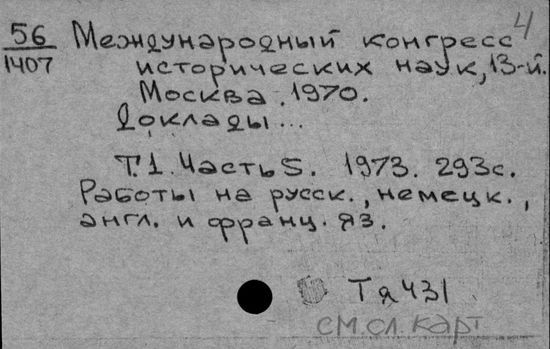 4
56
1407
Международный конгресс
исторических наук, 13-й.
Москва. 1970.
Доклады...
Т.1. Часть 5. 1973. 293с.
Работы на русск., немецк.,
англ. и франц. яз.
Тя431
см.сл.карт